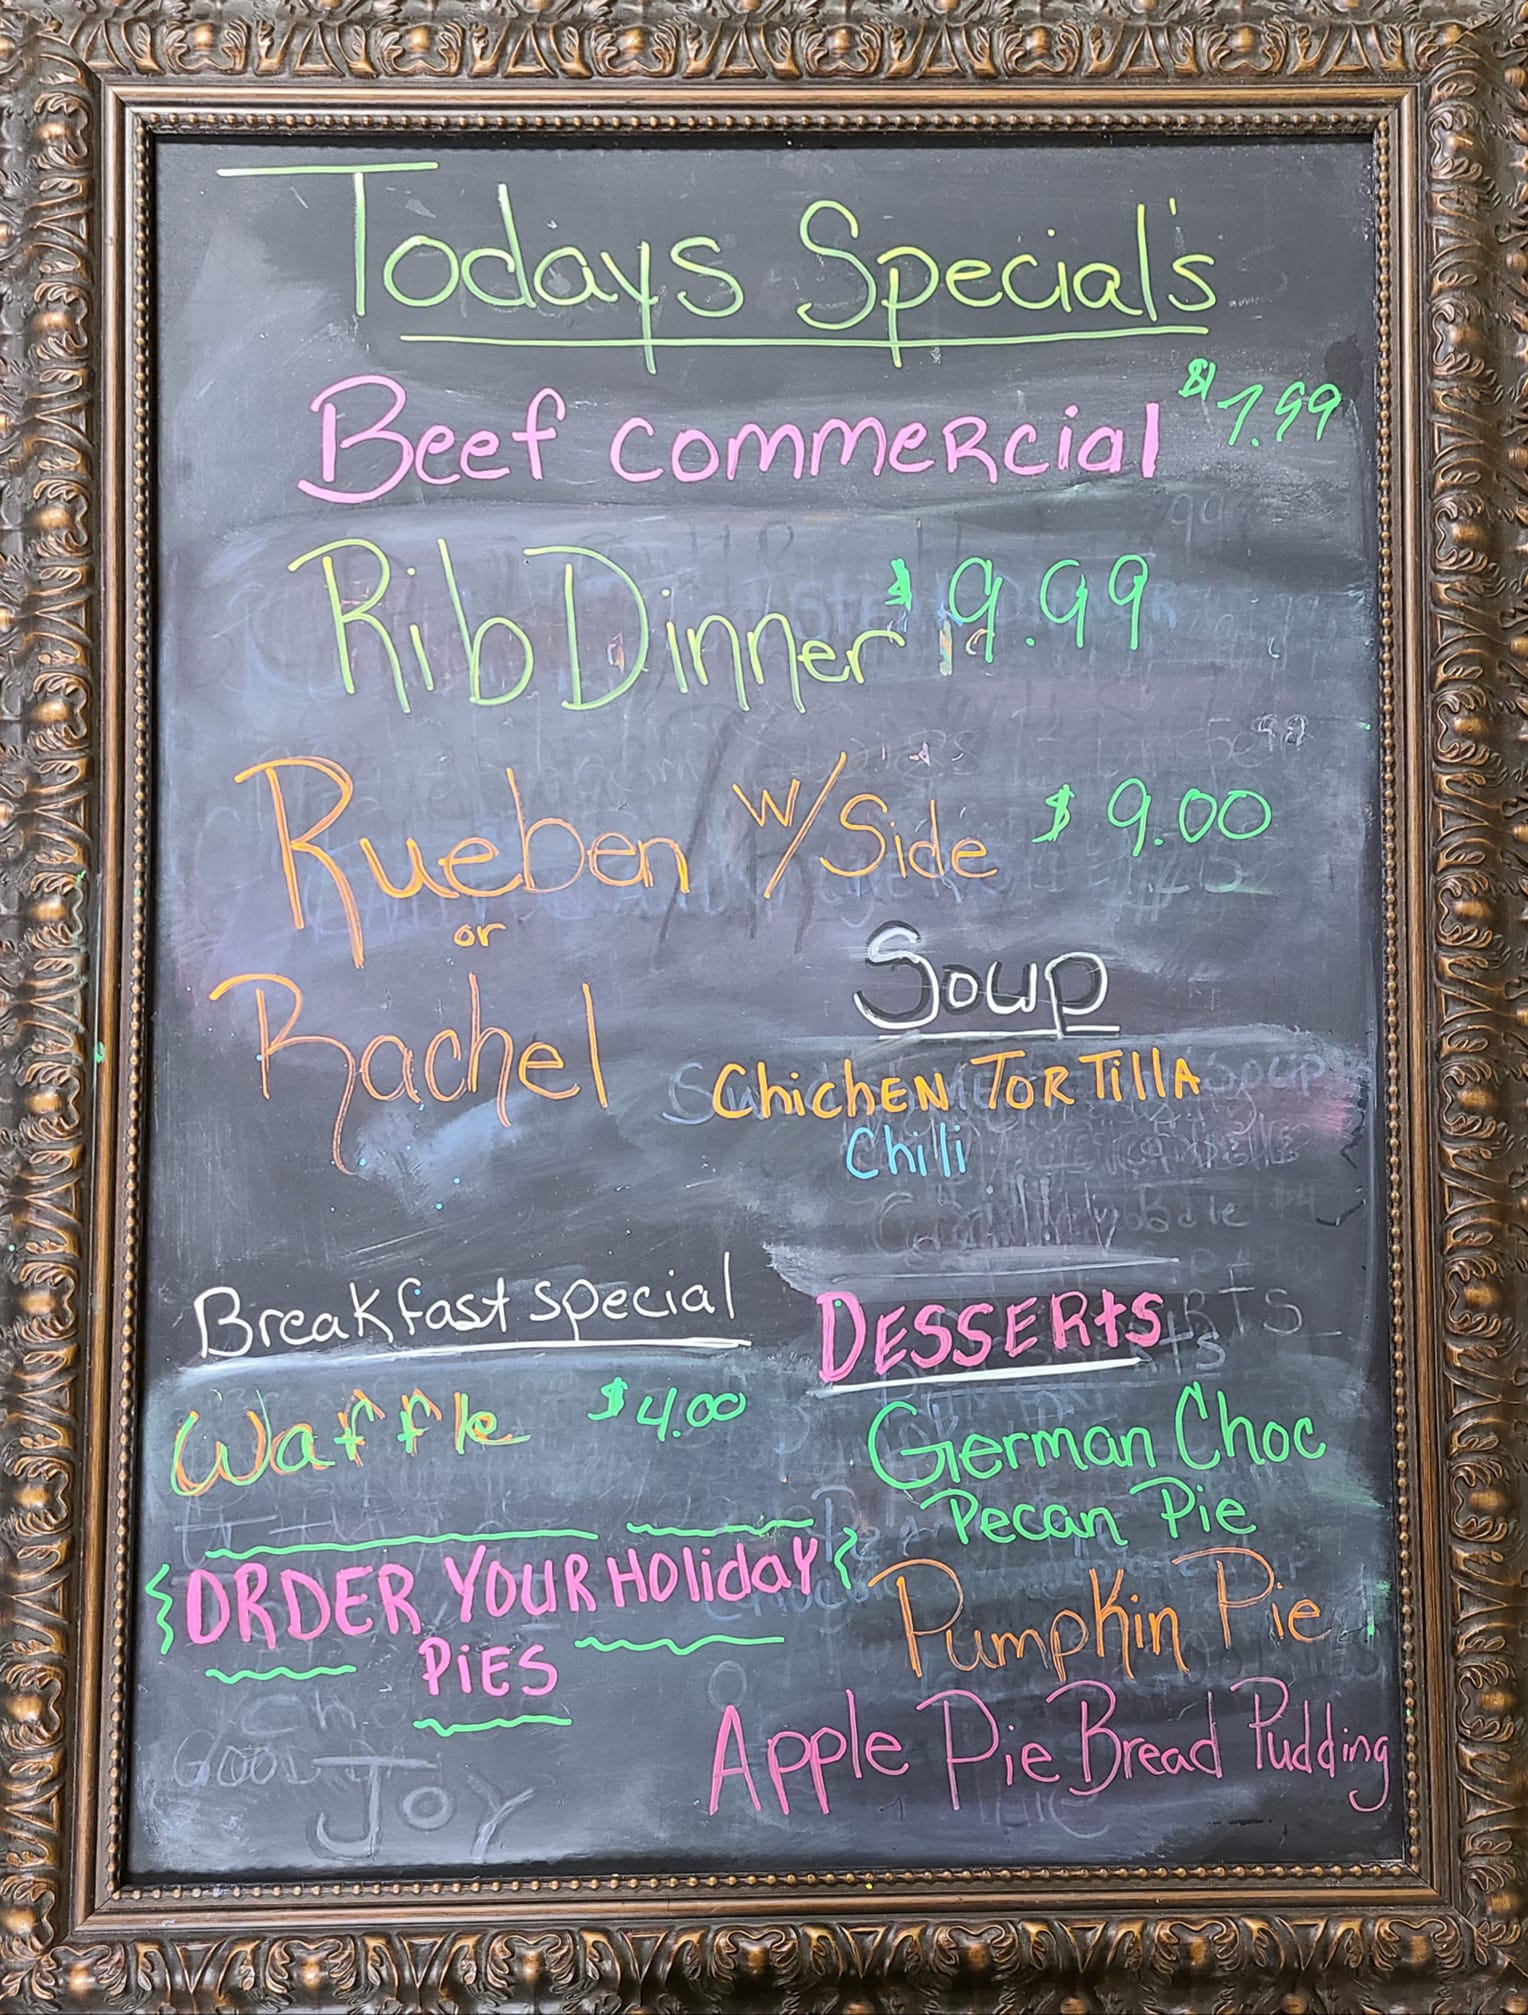 Todays Special's
Beef Commercial $7.99
Rib Dinner $9.99
Rueben w/Side $9.00
or
Rachel
Soup
Chicken Tortilla
Chilli
Breakfast special
Waffle $4.00
ORDER YOUR HOLiday
PiES
DESSERtS
German Choc
Pecan Pie
Pumpkin Pie
Apple Pie Bread Pudding
JOY